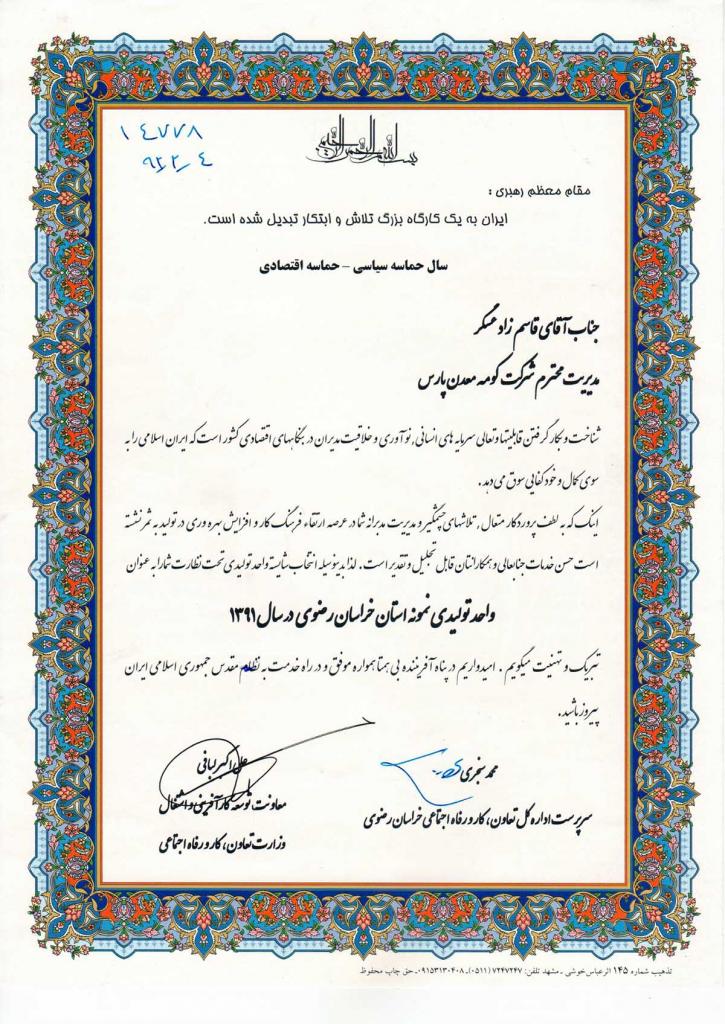 ۱۴۷۷۸
۹۲/۲/۴
بسم الله الرحمن الرحیم
مقام معظم رهبری :
ایران به یک کارگاه بزرگ تلاش و ابتکار تبدیل شده است.
سال حماسه سیاسی – حماسه اقتصادی
جناب آقای قاسم زاد عسگر
مدیریت محترم شرکت کومه معدن پارس
شناخت و بکار گرفتن قابلیتها و تعالی سرمایه های انسانی , نوآوری و خلاقیت مدیران در بنگاههای اقتصادی کشور است که ایران اسلامی را به
سوی کمال و خودکفایی سوق می دهد .
اینک که به لطف پروردگار متعال , تلاشهای چشمگیر و مدیریت مدبرانه شما در عرصه ارتقاء فرهنگ کار و افزایش بهره وری در تولید به ثمر نشسته
است حسن خدمات جنابعالی و همکارانتان قابل تجلیل و تقدیر است . لذا بدینوسیله انتخاب شایسته واحد تولیدی تحت نظارت شما را به عنوان
واحد تولیدی نمونه استان خراسان رضوی در سال ۱۳۹۱
تبریک و تهنیت میگویم . امیدواریم در پناه آفریننده بی همتا همواره موفق و در راه خدمت به نظام مقدس جمهوری اسلامی ایران
پیروز باشید .
محمد سنجری
سرپرست اداره کل تعاون، کار و رفاه اجتماعی خراسان رضوی
علی اکبر لبافی
معاونت توسعه کارآفرینی و اشتغال
وزارت تعاون، کار و رفاه اجتماعی
تذهیب شماره ۱۴۵ اثر عباس خوشی ـ مشهد تلفن: ۷۲۴۷۲۴۷ (۰۵۱۱) ـ ۰۹۱۵۳۱۳۰۴۰۸ ـ حق چاپ محفوظ